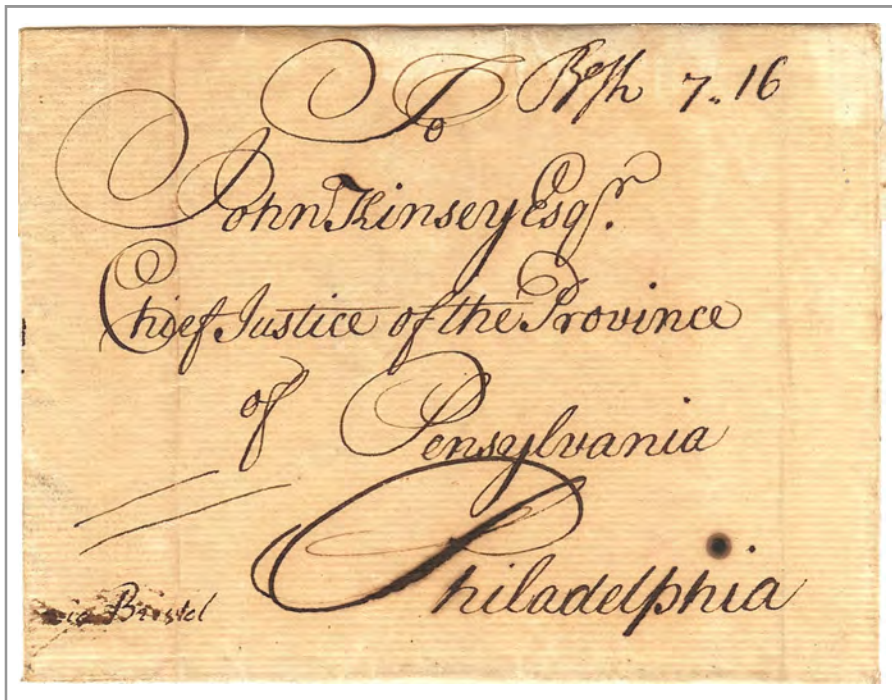 To
7.. 16
John Kinsey Esqr.
Chief Justice of the Province
of Pensylvania
Philadelphia
Bristol